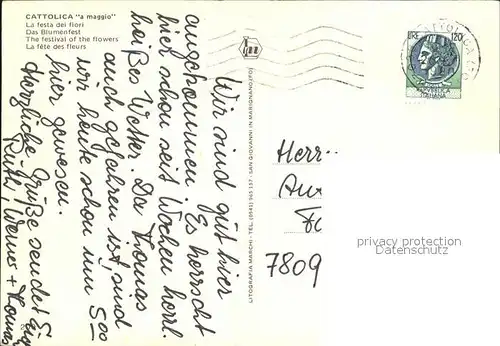 CATTOLICA "a maggio"
La festa dei fiori
Das Blumenfest
The festival of the flowers
La fête des fleurs
Wir sind gut hier
angekommen. Es herrscht
hier schon seit Wochen herrl.
heißes Wetter. Da Thomas
auch gefahren ist, sind
wir heute schon um 5oo
hier gewesen.
Herzliche Grüße sendet
Ruth, Werner + Thomas
LITOGRAFIA MARCHI - TEL. (0541) 945 157 - SAN GIOVANNI IN MARIGNANO (FO)
LIRE 120
REPUBBLICA
ITALIANA
Herr
7809
privacy protection
Datenschutz